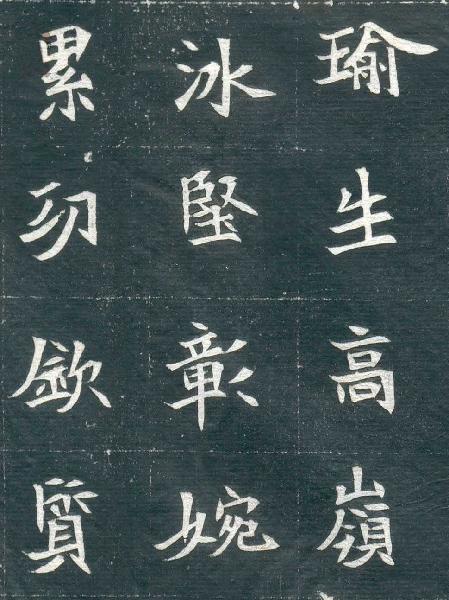 瑜生高嶺
冰堅彰婉
累仞欽質